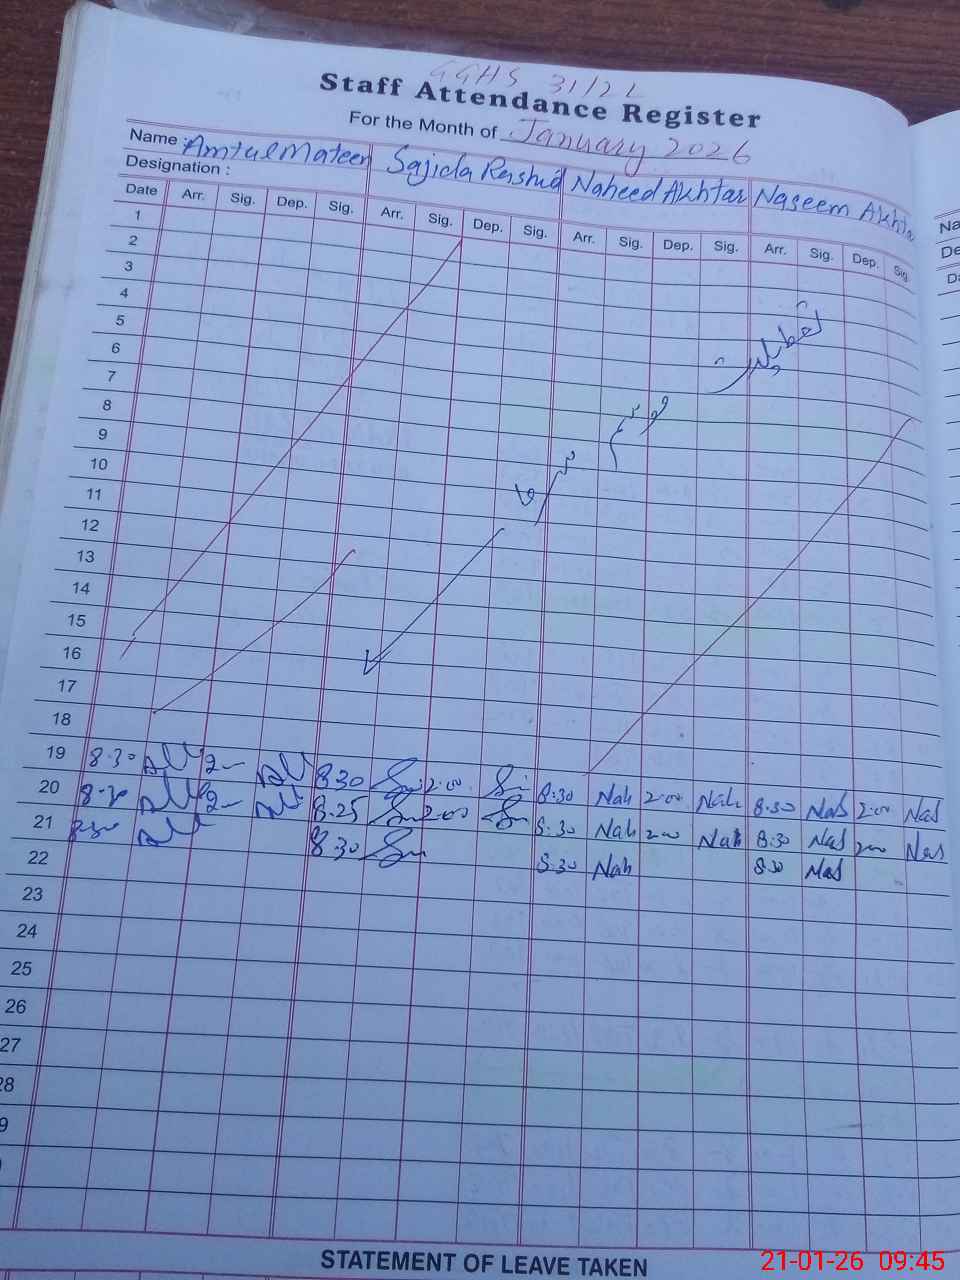 GGHS 31/2L
Staff Attendance Register
For the Month of January 2026
Name : Amtul Mateen Sajida Rashid Naheed Akhtar Naseem Akhta
Designation :
Date Arr. Sig. Dep. Sig. Arr. Sig. Dep. Sig. Arr. Sig. Dep. Sig. Arr. Sig. Dep. Sig.
1
2
3
4
5
6
7
8
9
10
11
12
13
14
15
16
17
18
19 8.30 8.30 2.00 8.30 Nah 2.00 Nah 8.30 Nas 2.00 Nas
20 8.30 8.25 2.00 8.30 Nah 2.00 Nah 8.30 Nas 2.00 Nas
21 8.30 8.30 8.30 Nah 8.30 Nas
22
23
24
25
26
27
28
9
STATEMENT OF LEAVE TAKEN
Na
De
Da
21-01-26 09:45